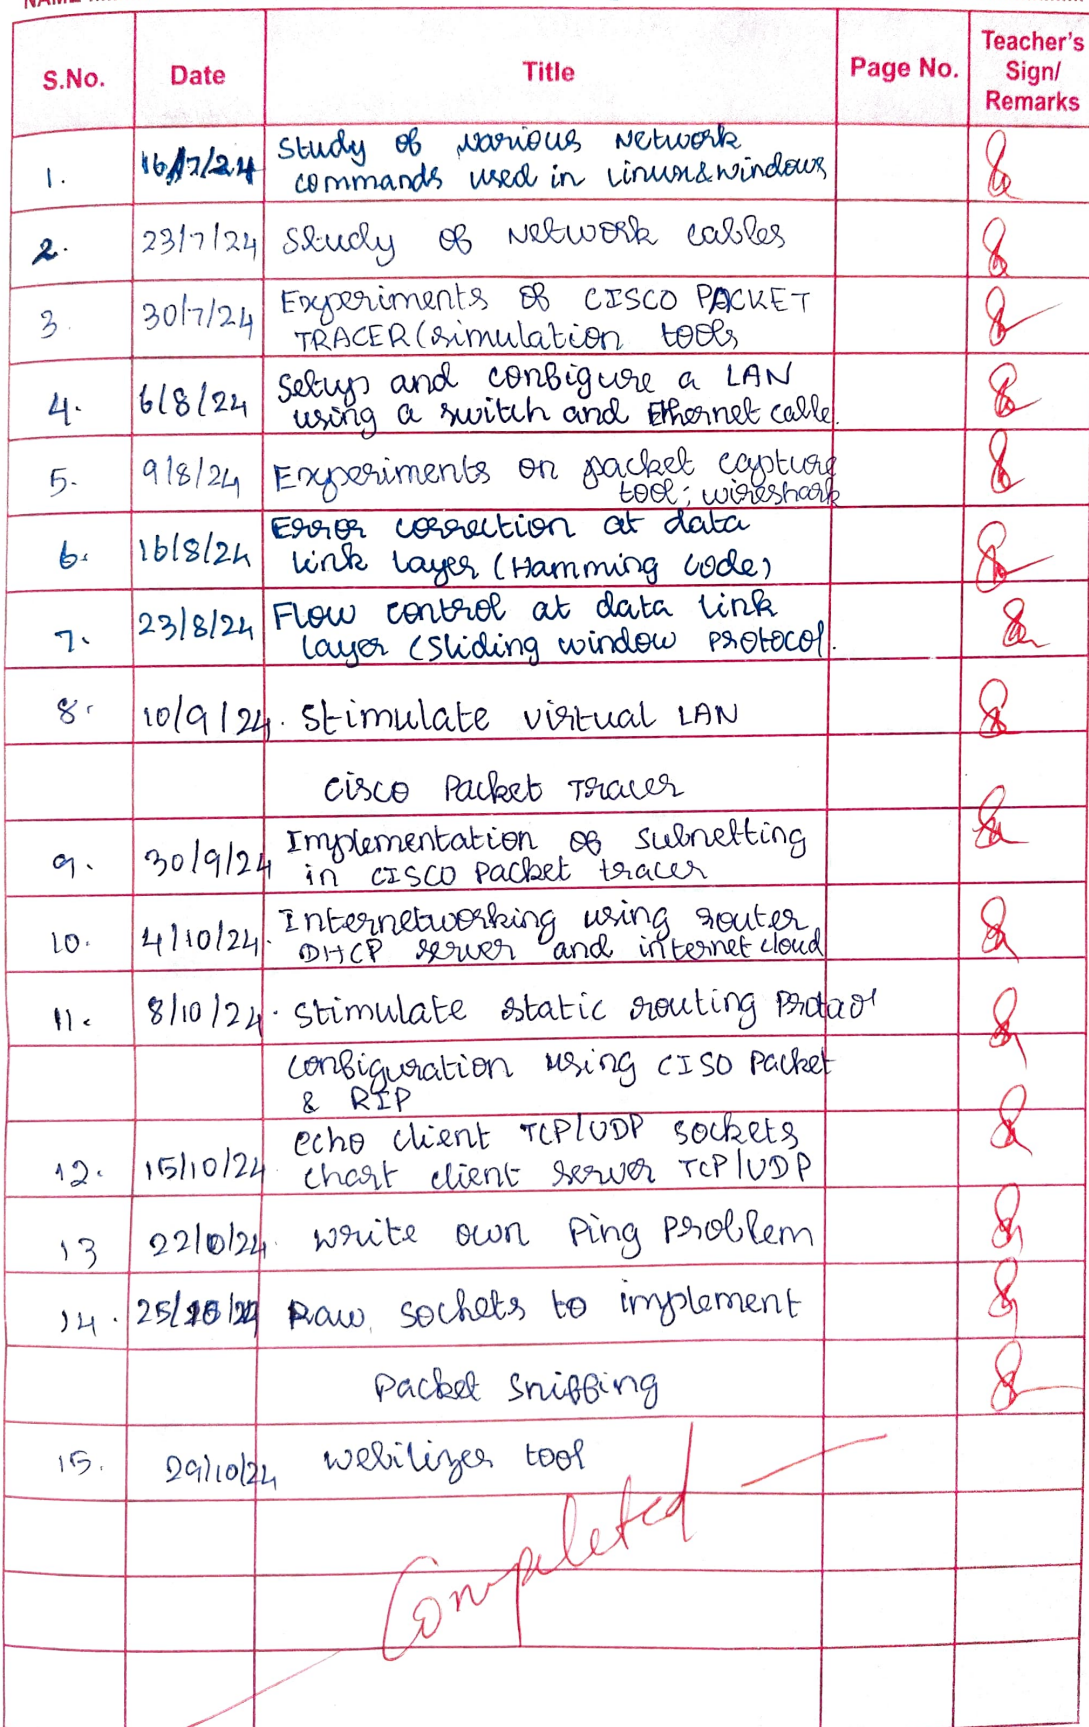 S.No. Date Title Page No. Teacher's Sign/ Remarks
1. 16/7/24 Study of various Network
commands used in Linux & windows
2. 23/7/24 Study of Network cables
3. 30/7/24 Experiments of CISCO PACKET
TRACER (simulation tools
4. 6/8/24 Setup and configure a LAN
using a switch and Ethernet calle.
5. 9/8/24 Experiments on packet capture
tool; wireshark
6. 16/8/24 Error correction at data
link layer (Hamming code)
7. 23/8/24 Flow control at data link
layer (Sliding window protocol.
8. 10/9/24. Stimulate virtual LAN
cisco Packet Tracer
9. 30/9/24 Implementation of subnetting
in CISCO Packet tracer
10. 4/10/24. Internetworking using router
DHCP server and internet cloud
11. 8/10/24. Stimulate static routing
configuration using CISO Packet
& RIP
echo client TCP/UDP sockets
12. 15/10/24 chart client server TCP/UDP
13 22/0/24. write own Ping Problem
14. Raw sochets to implement
Packet Sniffing
15. 29/10/24 webilizer tool
Completed